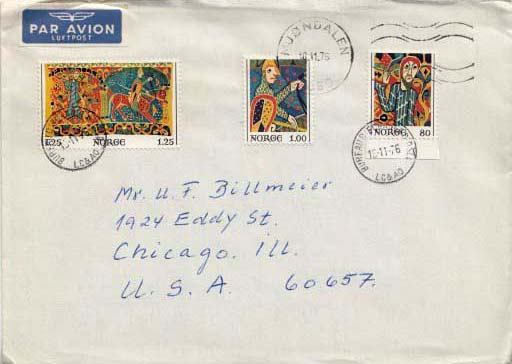 PAR AVION
LUFTPOST
10.11.76
1.25 NORGE 1.25
NORGE 1.00
NORGE 80
15-11-76
LC&AO
LC&AO
Mr. U. F. Billmeier
1924 Eddy St.
Chicago. Ill.
U. S. A. 60657.